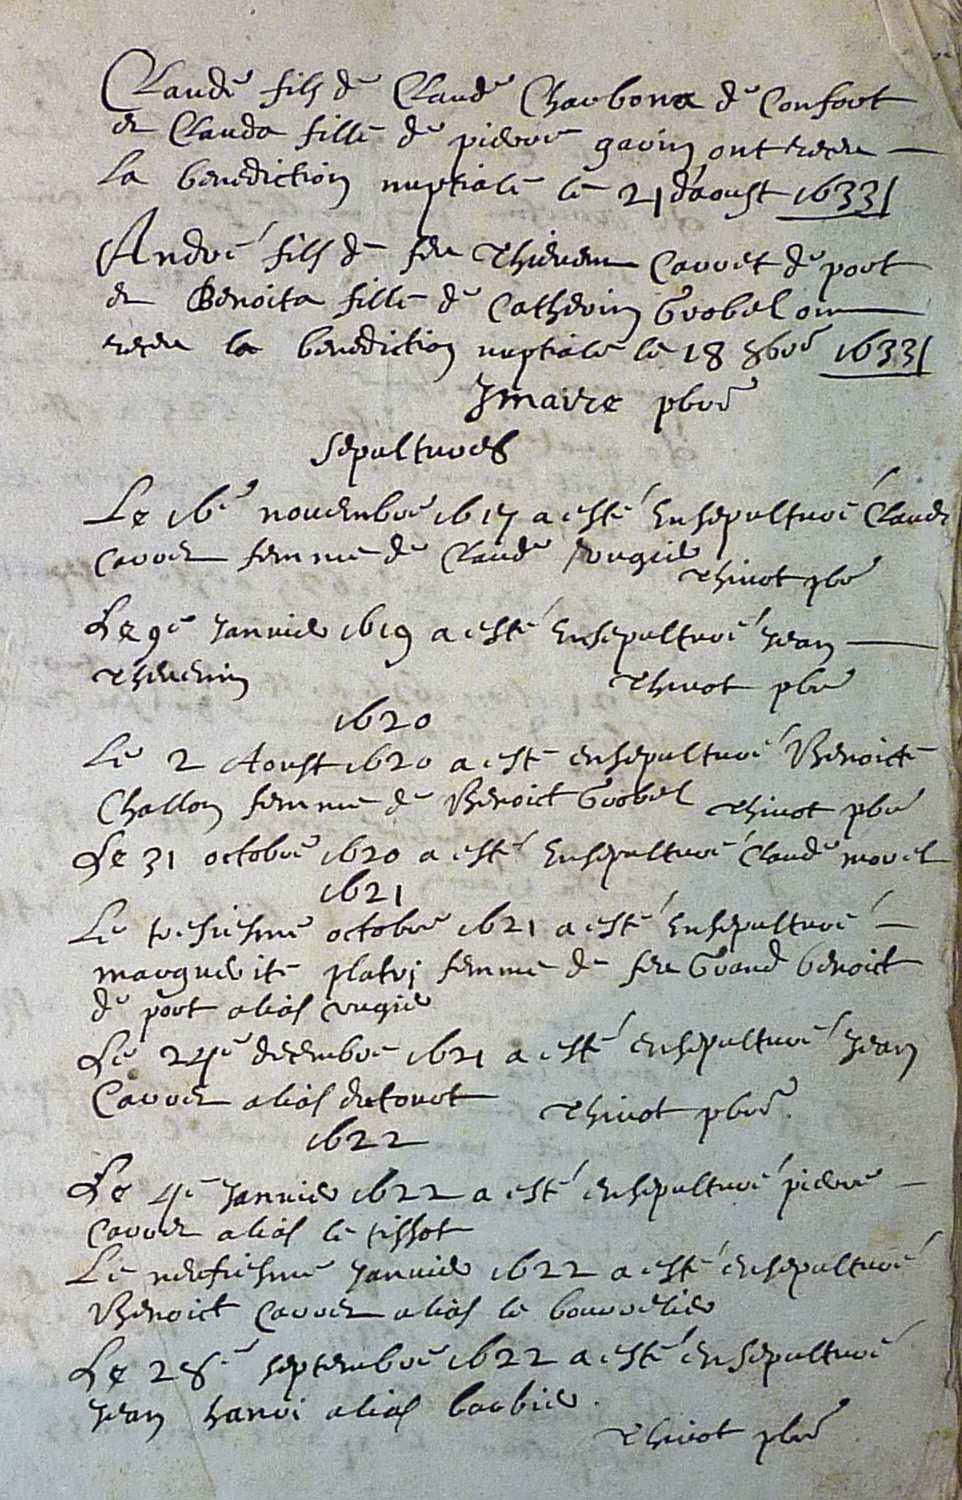 Claude fils de Claude Charbona de Confort
et Clauda fille de pierre gavin ont receu
la benediction nuptiale le 21 d'aoust 1633
André fils de feu Thievent Carret de port
et Benoita fille de Catherin Grobel ont
receu la benediction nuptiale le 18 8bre 1633
Jmaire pbre
sepultures
Le 16e novembre 1617 a esté ensepulturé Claude
Carrer femme de Claude rougier
Thivot pbre
Le 9e Janvier 1619 a esté ensepulturé Jean
Thevenin Thivot pbre
1620
Le 2 Aoust 1620 a esté ensepulturé Benoicte
Challon femme de Benoict Grobel Thivot pbre
Le 31 octobre 1620 a esté ensepulturé Claude morel
1621
Le tresiesme octobre 1621 a esté ensepulturé
marguerite platrj femme de feu Grand benoict
de port alias rugier
Le 24e decembre 1621 a esté ensepulturé Jean
Carrer alias dutorot Thivot pbre
1622
Le 4e Janvier 1622 a esté ensepulturé pierre
Carrer alias le tissot
Le neufiesme Janvier 1622 a esté ensepulturé
Benoict Carrer alias le bourrelier
Le 28e septembre 1622 a esté ensepulturé
Jean hanri alias barbier.
Thivot pbre